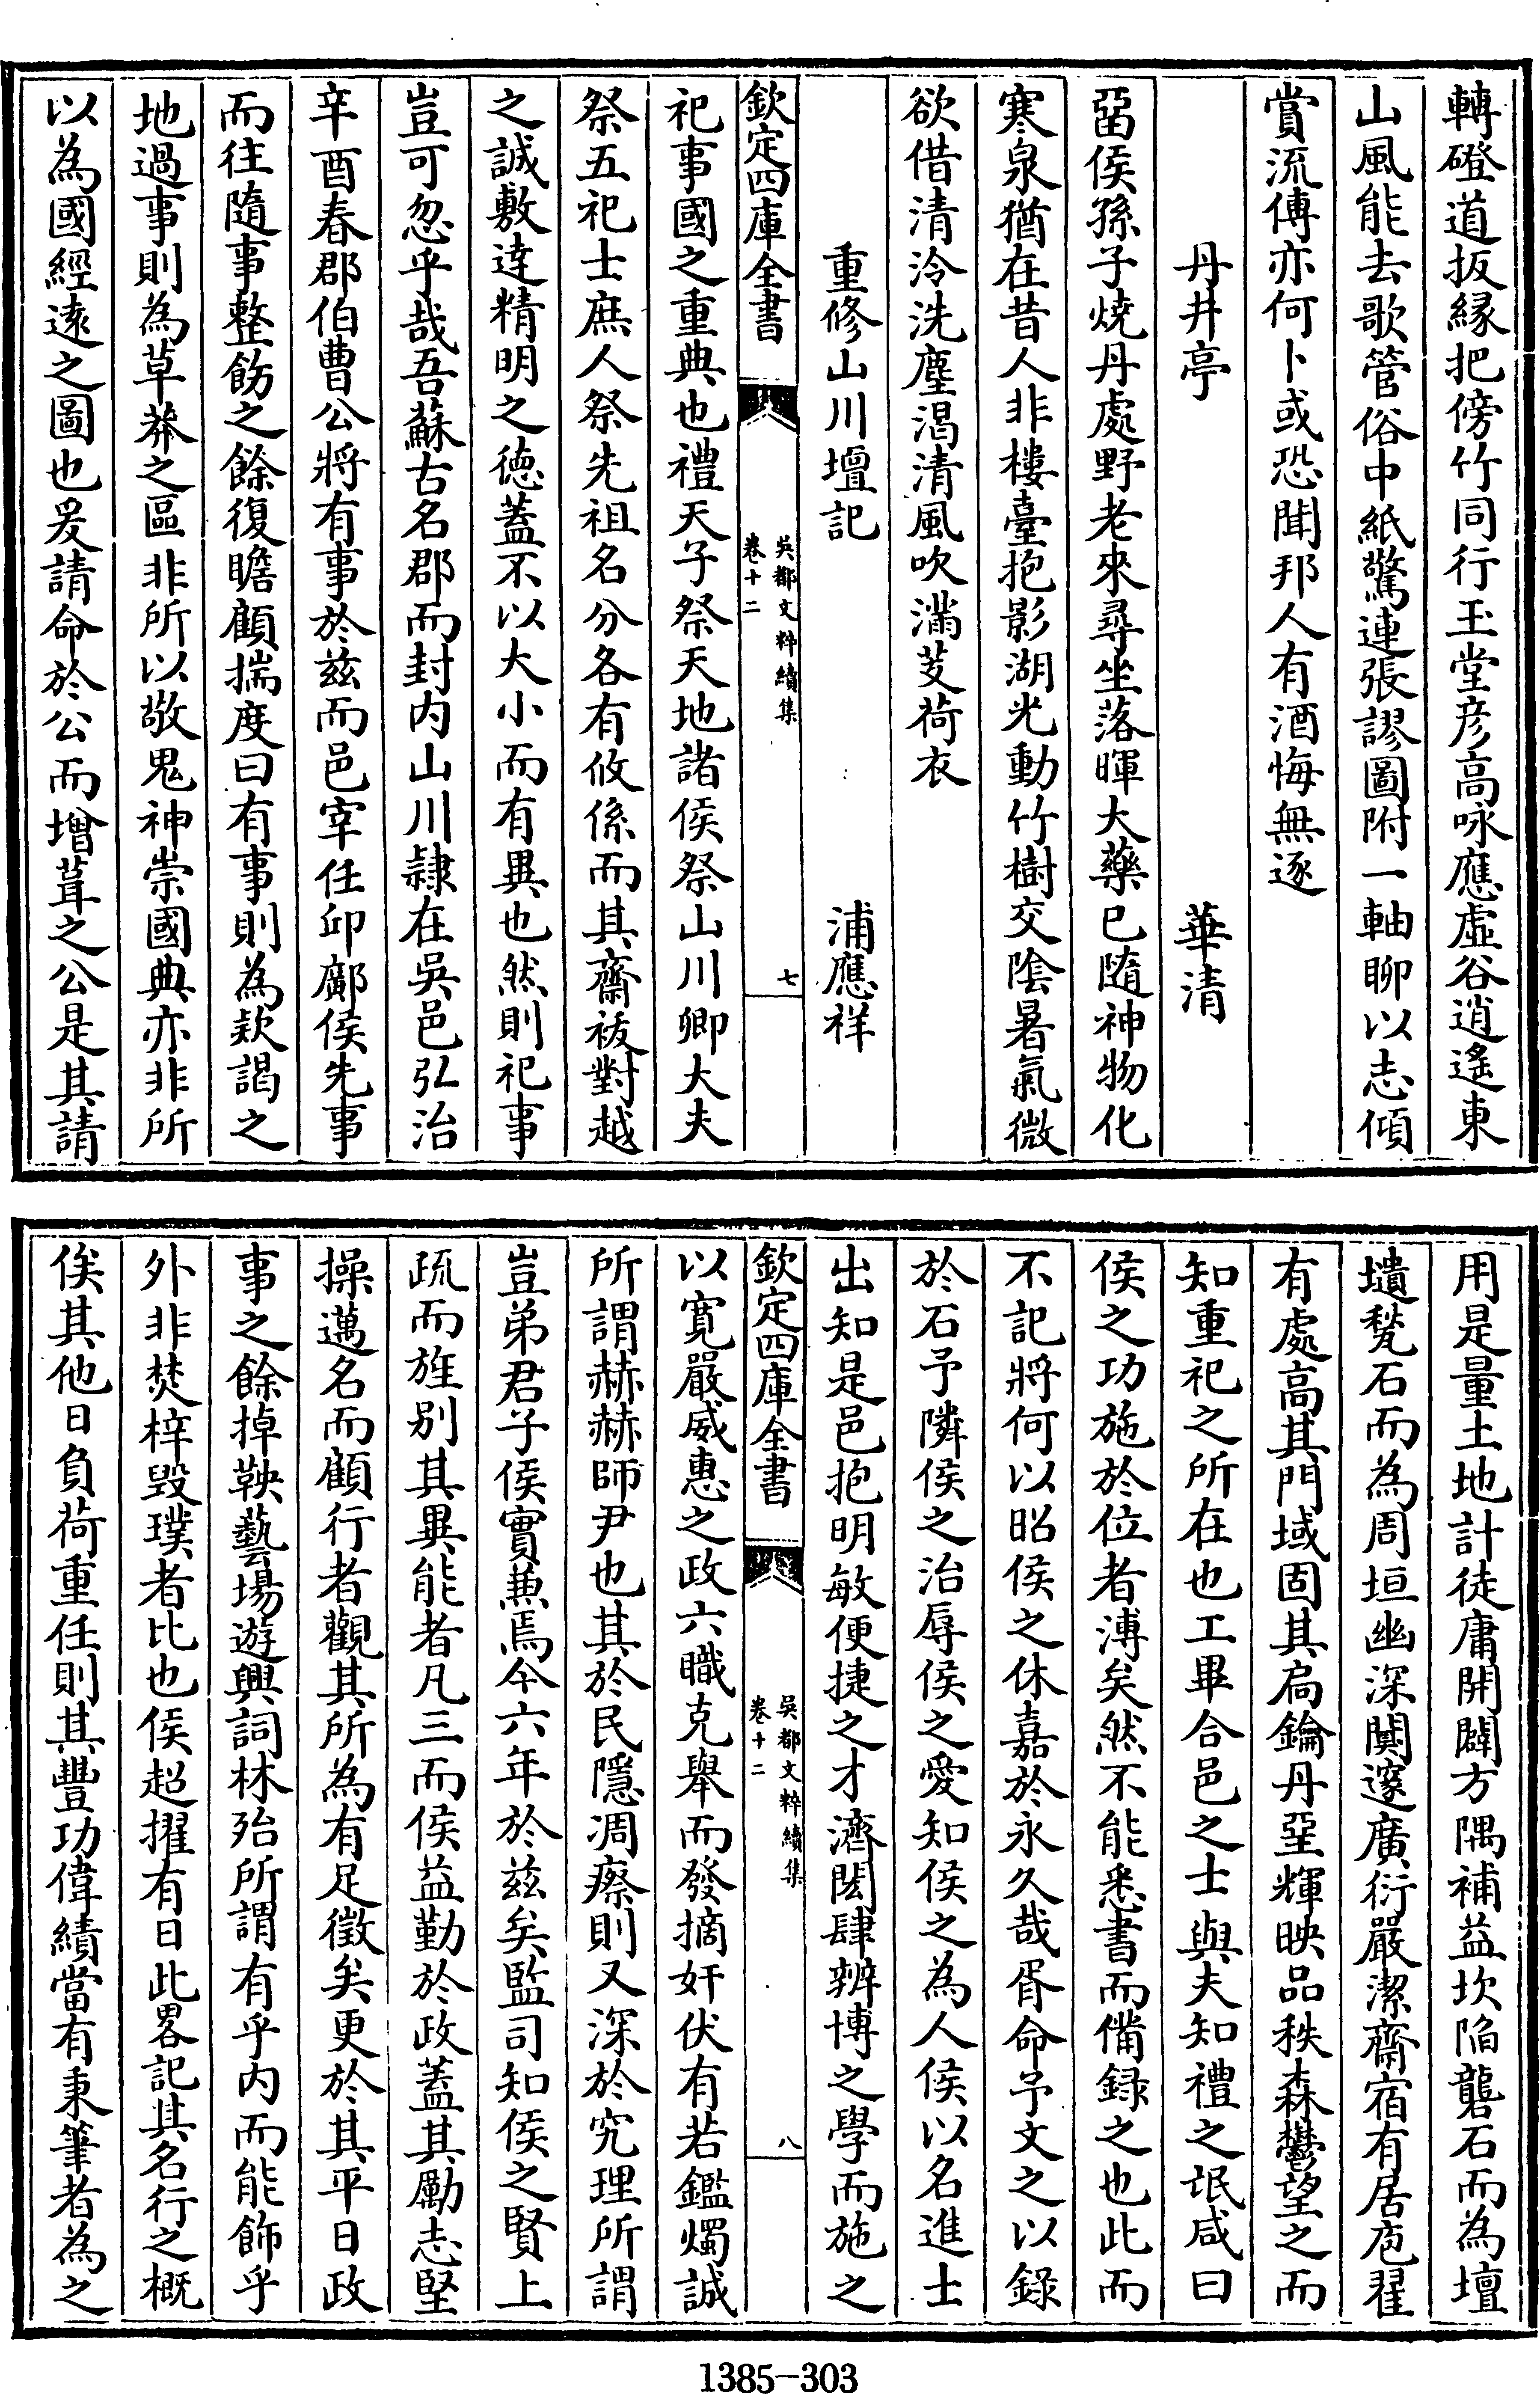 轉磴道扳縁把傍竹同行玉堂彦高咏應虚谷逍遙東
山風能去歌管俗中紙驚連張謬圖附一軸聊以志傾
賞流傳亦何卜或恐聞邦人有酒悔無逐
丹井亭　華清
畱侯孫子焼丹處野老來尋坐落暉大藥已随神物化
寒泉猶在昔人非樓臺抱影湖光動竹樹交隂暑氣微
欲借清泠洗塵渴清風吹滿芰荷衣
重修山川壇記　浦應祥
欽定四庫全書
吳都文粹續集
卷十二
七
祀事國之重典也禮天子祭天地諸侯祭山川卿大夫
祭五祀士庶人祭先祖名分各有攸係而其齋祓對越
之誠敷達精明之徳蓋不以大小而有異也然則祀事
豈可忽乎哉吾蘇古名郡而封内山川隷在吳邑弘治
辛酉春郡伯曹公將有事於兹而邑宰任邱鄺侯先事
而往隨事整飭之餘復瞻顧揣度曰有事則為欵謁之
地過事則為草莽之區非所以敬鬼神崇國典亦非所
以為國經逺之圖也爰請命於公而增葺之公是其請
用是量土地計徒庸開闢方隅補益坎陷礱石而為壇
壝甃石而為周垣幽深闃邃廣衍嚴潔齋宿有居庖湢
有處高其門域固其扃鑰丹堊輝映品秩森鬱望之而
知重祀之所在也工畢合邑之士與夫知禮之氓咸曰
侯之功施於位者溥矣然不能悉書而備録之也此而
不記將何以昭侯之休嘉於永久哉胥命予文之以錄
於石予隣侯之治辱侯之愛知侯之為人侯以名進士
出知是邑抱明敏便捷之才濟閎肆辨博之學而施之
欽定四庫全書
吳都文粹續集
卷十二
八
以寛嚴威惠之政六職克舉而發摘奸伏有若鑑燭誠
所謂赫赫師尹也其於民隠凋瘵則又深於究理所謂
豈弟君子侯實兼焉今六年於兹矣監司知侯之賢上
疏而旌别其異能者凡三而侯益勤於政蓋其勵志堅
操邁名而顧行者觀其所為有足徵矣更於其平日政
事之餘掉鞅藝場遊興詞林殆所謂有乎内而能飾乎
外非焚梓毁璞者比也侯超擢有日此畧記其名行之概
俟其他日負荷重任則其豐功偉績當有秉筆者為之
1385-303